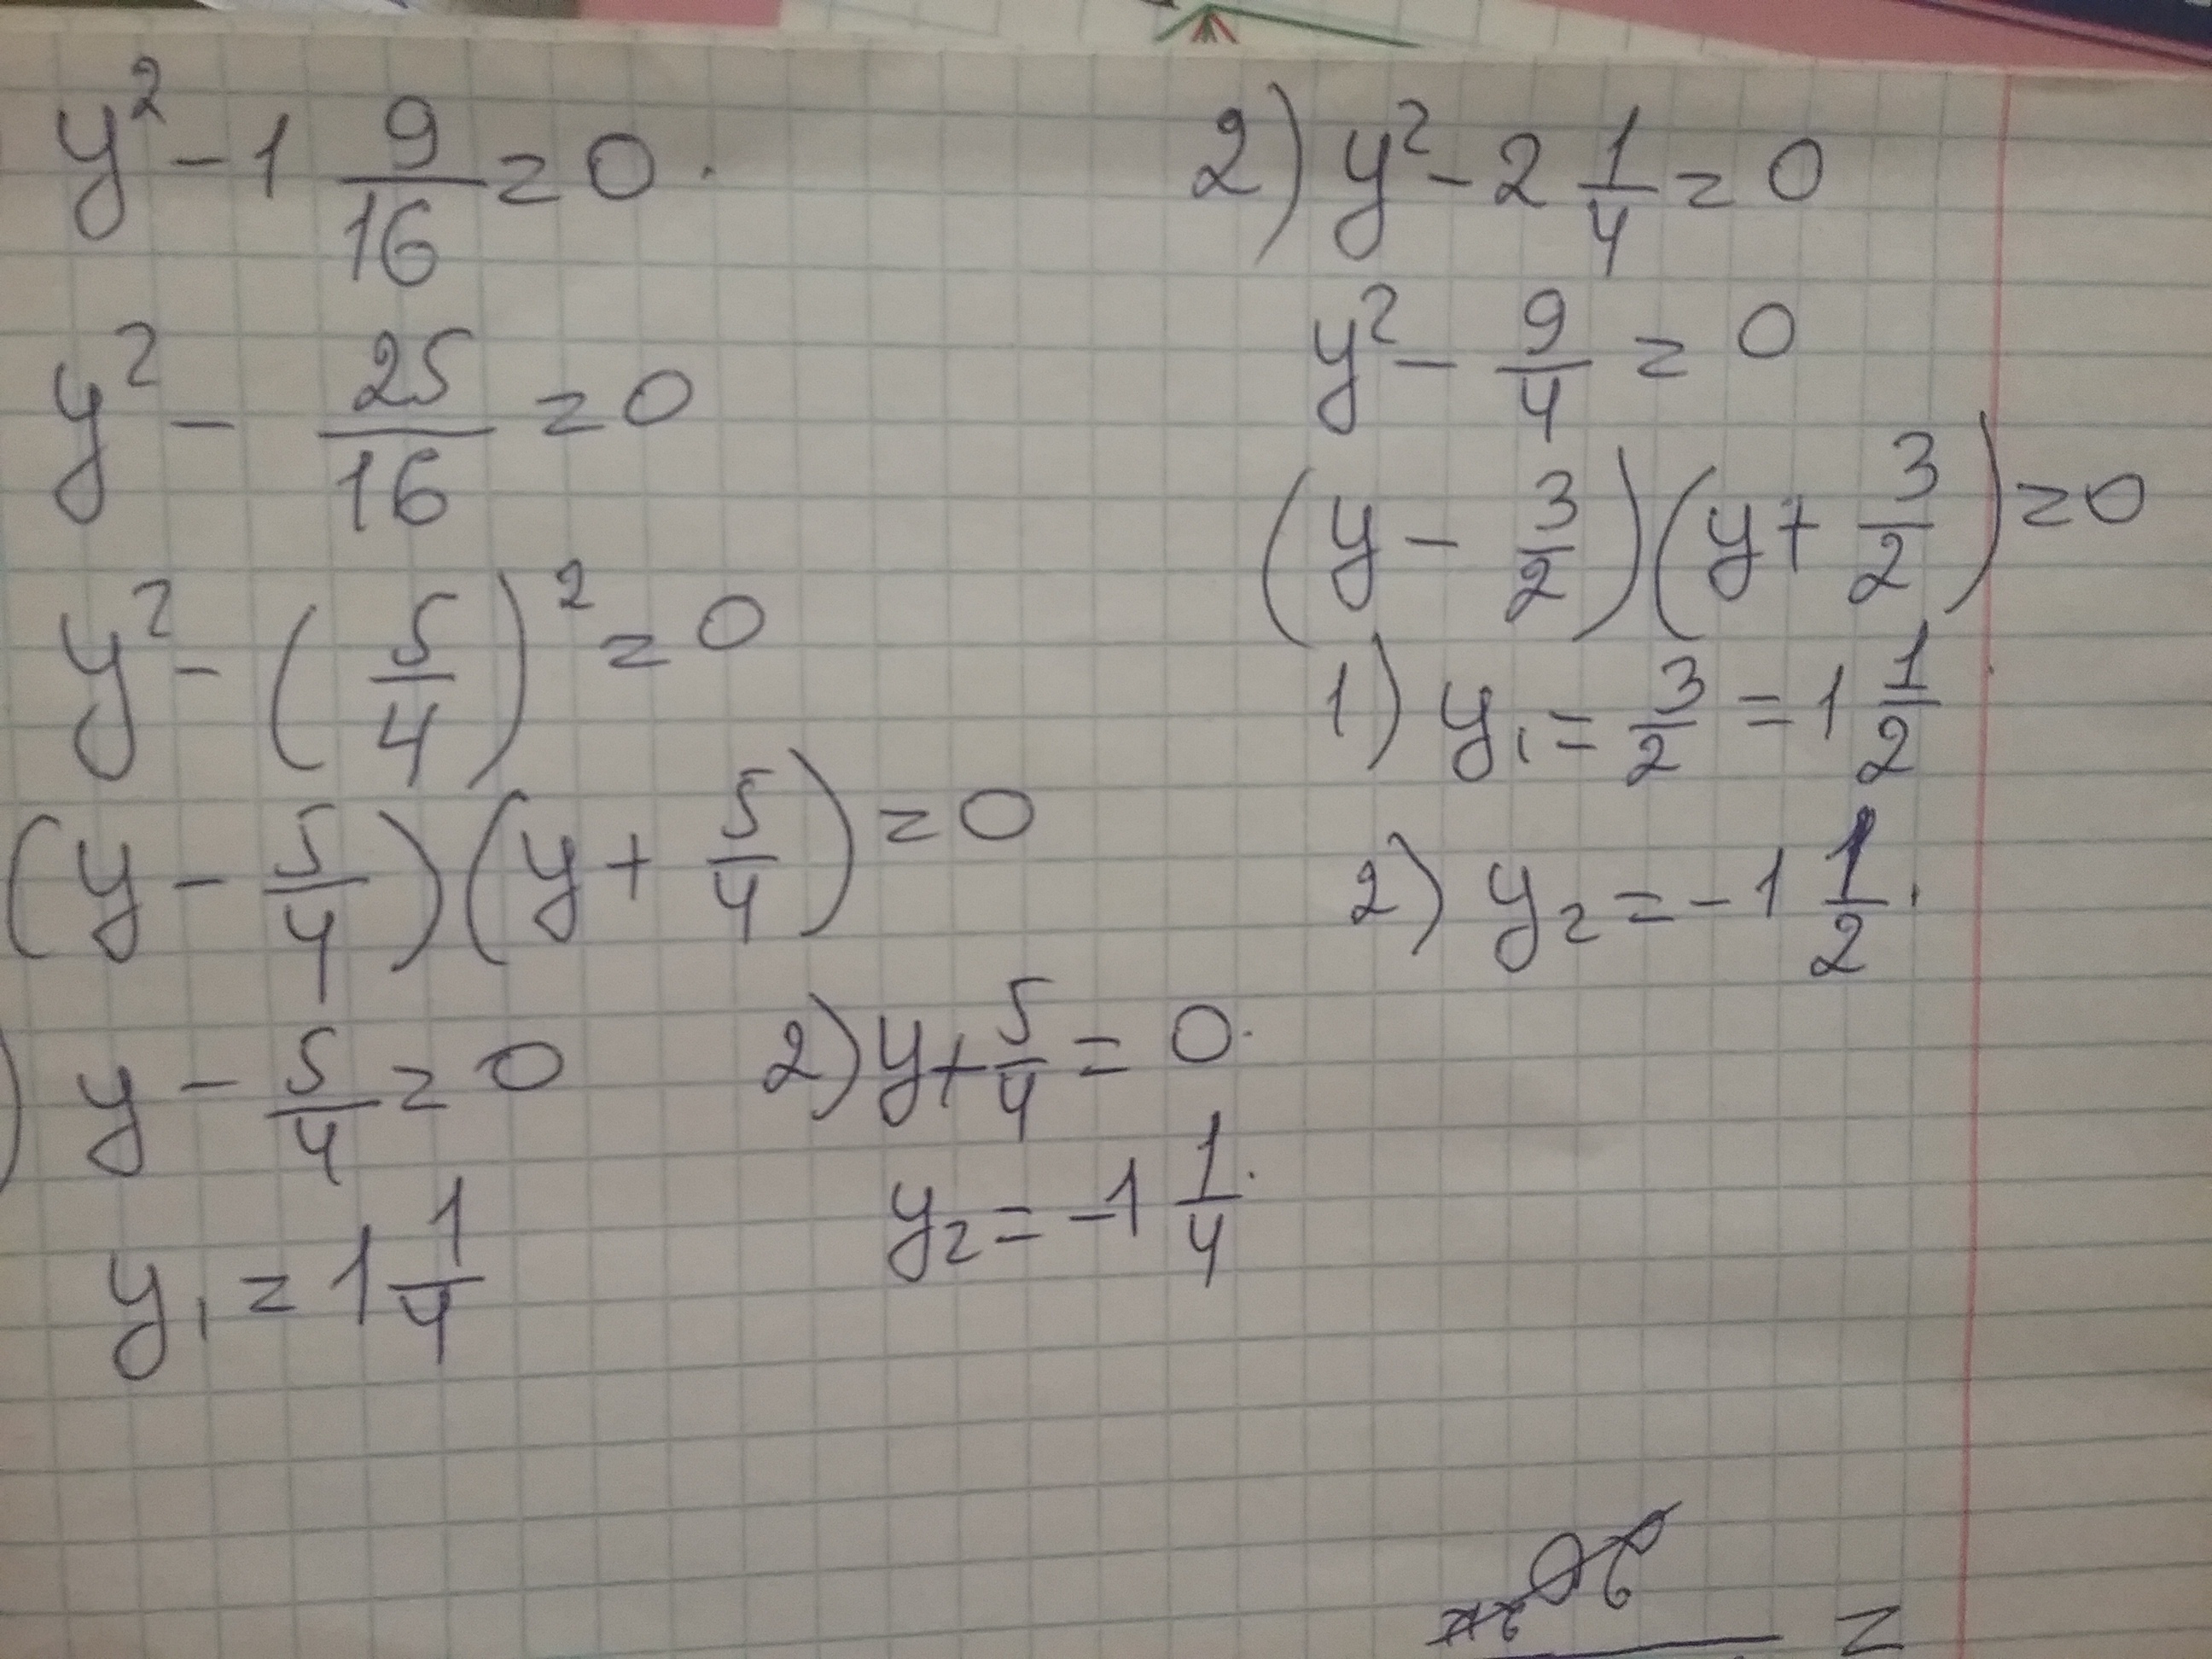 y² - 1 9/16 = 0.
y² - 25/16 = 0
y² - (5/4)² = 0
(y - 5/4)(y + 5/4) = 0
) y - 5/4 = 0
y₁ = 1 1/4
2) y + 5/4 = 0.
y₂ = -1 1/4.
2) y² - 2 1/4 = 0
y² - 9/4 = 0
(y - 3/2)(y + 3/2) = 0
1) y₁ = 3/2 = 1 1/2
2) y₂ = -1 1/2.
=